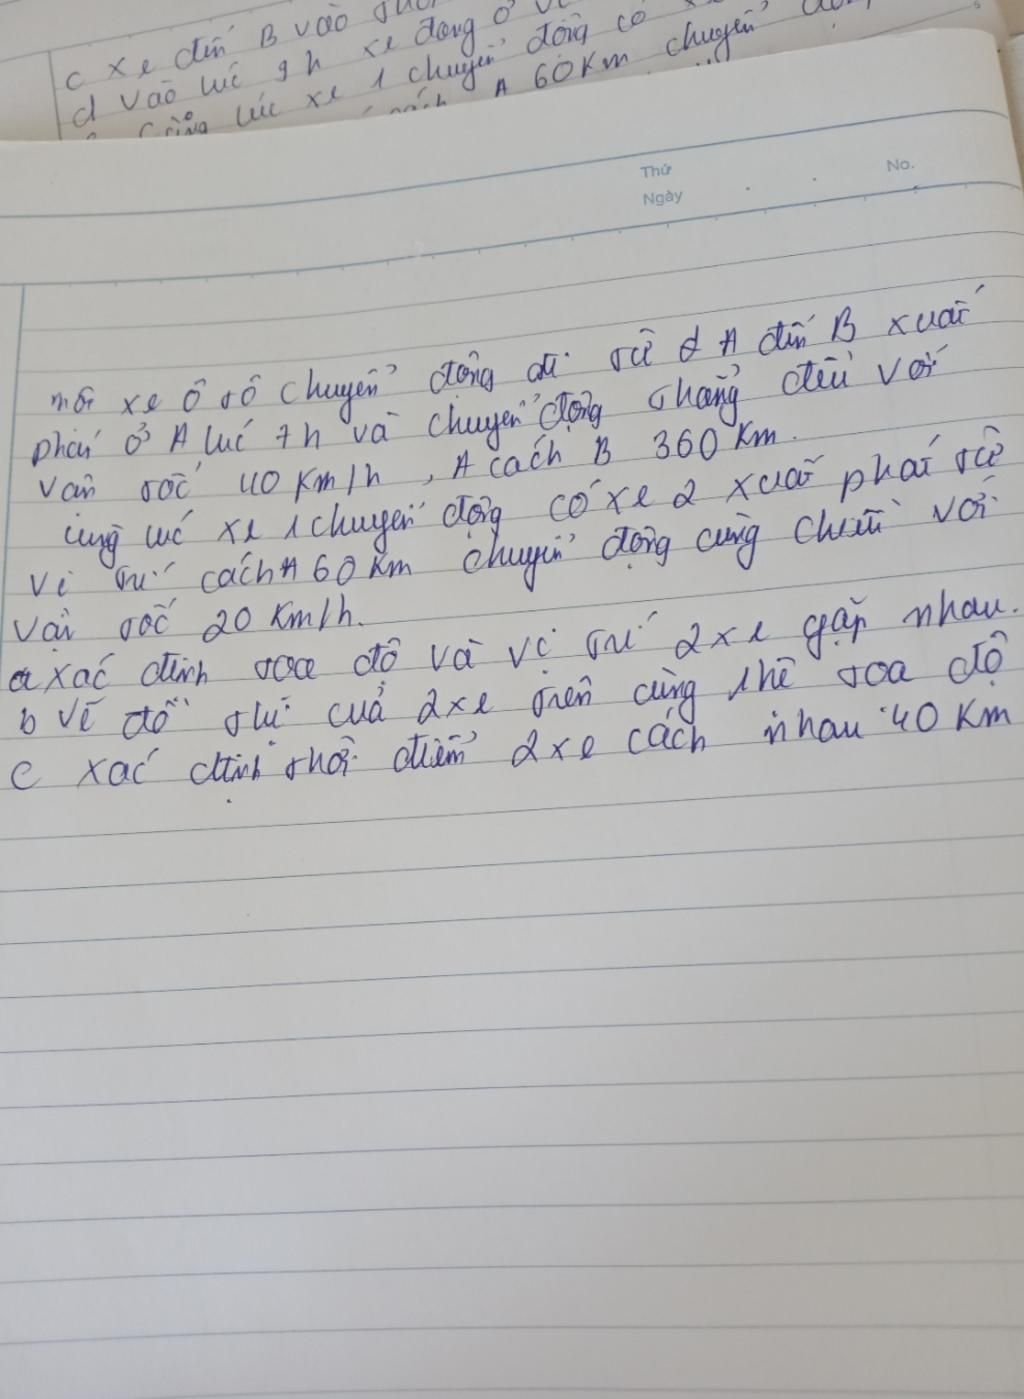 c xe đến B vào
d vào lúc 9h xe đang ở
cùng lúc xe 1 chuyển động có
cách A 60km chuyển
Thứ
Ngày
No.
một xe ô tô chuyển động đi từ A đến B xuất
phát ở A lúc 7h và chuyển động thẳng đều với
vận tốc 40 km/h, A cách B 360 km.
cùng lúc xe 1 chuyển động có xe 2 xuất phát từ
vị trí cách A 60 km chuyển động cùng chiều với
vận tốc 20 km/h.
a xác định toạ độ và vị trí 2 xe gặp nhau.
b vẽ đồ thị cuả 2 xe trên cùng 1 hệ toạ độ
c xác định thời điểm 2 xe cách nhau 40 km